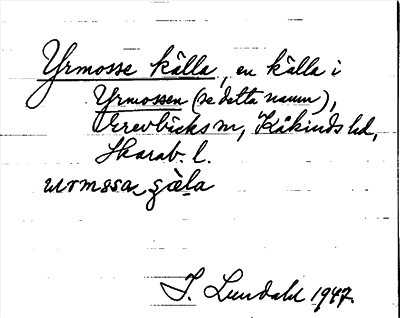 Yrmosse källa, en källa i
Yrmossen (se detta namn),
Erevbäcks sn, Kåkinds hd,
Skarab. l.
urmssa gäla
I. Lundahl 1947.